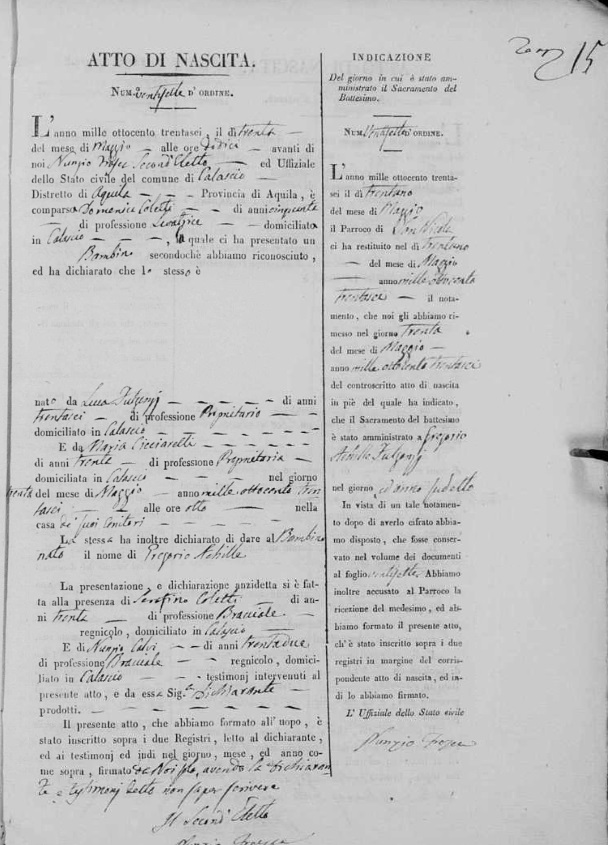 15
ATTO DI NASCITA.
NUM. ventisette D'ORDINE.
L'anno mille ottocento trentasei, il dì trenta
del mese di Maggio alle ore dodici avanti di
noi Nunzio Second'Eletto ed Uffiziale
dello Stato civile del comune di Calascio
Distretto di Aquila Provincia di Aquila, è
comparsa Domenica Coletti di anni cinquanta
di professione Levatrice domiciliata
in Calascio, la quale ci ha presentato un
Bambino secondochè abbiamo riconosciuto,
ed ha dichiarato che lo stesso è
nato da Luca di anni
trentasei di professione Proprietario
domiciliato in Calascio
E da Maria Cicciarelli
di anni trenta di professione Proprietaria
domiciliata in Calascio nel giorno
trenta del mese di Maggio anno mille ottocento tren
tasei alle ore otto nella
casa de' suoi Genitori
La stessa ha inoltre dichiarato di dare al Bambino
nato il nome di Gregorio Achille
La presentazione, e dichiarazione anzidetta si è fat-
ta alla presenza di Serafino Coletti di an-
ni trenta di professione Bracciale
regnicolo, domiciliato in Calascio
E di Nunzio Calvi di anni trentadue
di professione Bracciale regnicolo, domici-
liato in Calascio testimonj intervenuti al
presente atto, e da essa Sig.a Dichiarante
prodotti.
Il presente atto, che abbiamo formato all'uopo, è
stato inscritto sopra i due Registri, letto al dichiarante,
ed ai testimonj ed indi nel giorno, mese, ed anno co-
me sopra, firmato da Noi solo, avendo la dichiaran
te e testimonj detto non saper scrivere
Il Second'Eletto
Nunzio
INDICAZIONE
Del giorno in cui è stato am-
ministrato il Sacramento del
Battesimo.
NUM. D'ORDINE.
L'anno mille ottocento trenta-
sei il dì trentuno
del mese di Maggio
il Parroco di Don Nicola
ci ha restituito nel dì trentuno
del mese di Maggio
anno mille ottocento
trentasei il nota-
mento, che noi gli abbiamo ri-
messo nel giorno trenta
del mese di Maggio
anno mille ottocento trentasei
del controscritto atto di nascita
in piè del quale ha indicato,
che il Sacramento del battesimo
è stato amministrato a Gregorio
Achille
nel giorno ed anno sudetto
In vista di un tale notamen-
to dopo di averlo cifrato abbia-
mo disposto, che fosse conser-
vato nel volume dei documenti
al foglio ventisette Abbiamo
inoltre accusato al Parroco la
ricezione del medesimo, ed ab-
biamo formato il presente atto,
ch'è stato inscritto sopra i due
registri in margine del corris-
pondente atto di nascita, ed in-
di lo abbiamo firmato.
L' Uffiziale dello Stato civile
Nunzio